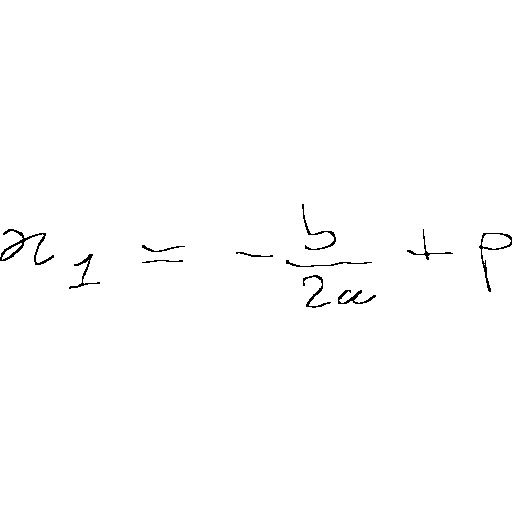 x_1 = -\frac{b}{2a} + p